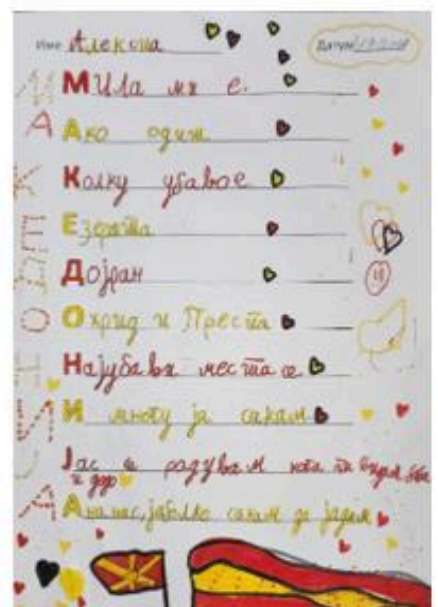 Име Алекса
Датум
Мила ми е.
Ако одиш
Колку убавое
Езерата
Дојран
Охрид и Преспа
Најубави места се
И многу ја сакам
Јас се радувам кога ти
и дур
Ананас, јаболко сакам да јадам
МАКЕДОНИЈА